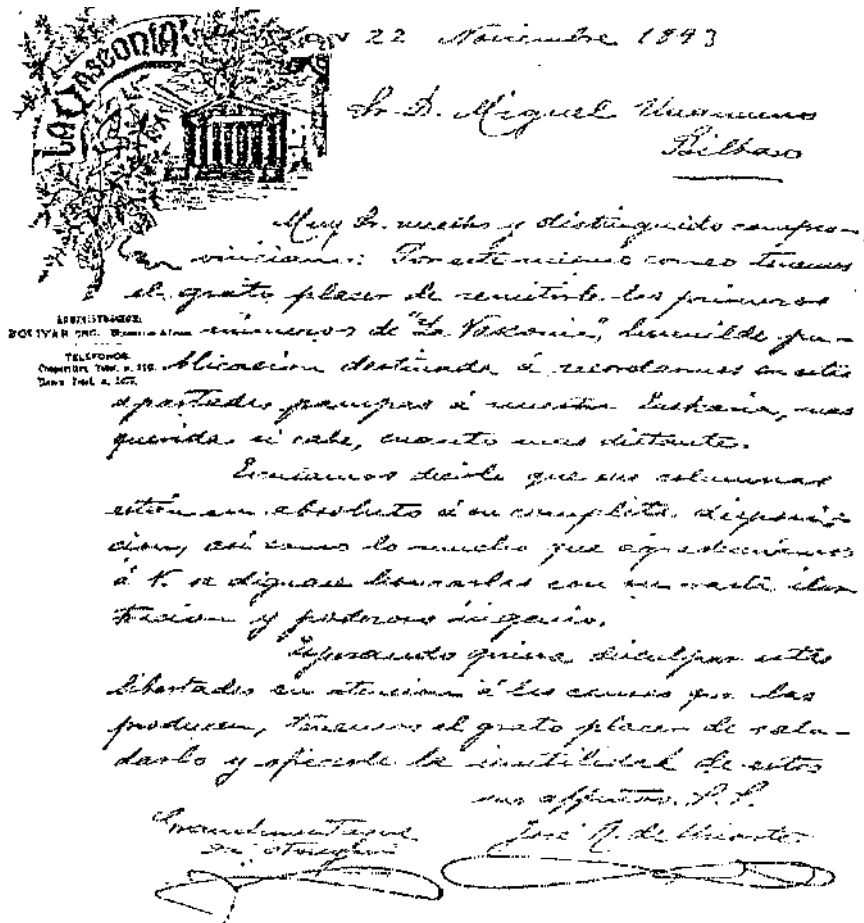 LA VASCONIA
22 Noviembre 1893
Sr. D. Miguel Unamuno
Bilbao
Muy Sr. nuestro y distinguido compro-
vinciano: Por este mismo correo tenemos
el grato placer de remitirle los primeros
números de "La Vasconia", humilde pu-
blicación destinada á recordarnos en estas
apartadas pampas á nuestra Euskaria, mas
querida si cabe, cuanto mas distante.
Escusamos decirle que sus columnas
están en absoluto á su completa disposi-
ción, así como lo mucho que agradeceríamos
á V. se dignase honrarlas con su vasta ilus-
tración y poderoso ingenio.
Esperando quiera disculpar estas
libertades en atención á las causas que las
producen, tenemos el grato placer de salu-
darlo y ofrecerle la inutilidad de estos
sus affmos. S. S.
José R. de Uriarte
ADMINISTRACION:
BOLIVAR Buenos Aires
TELEFONOS